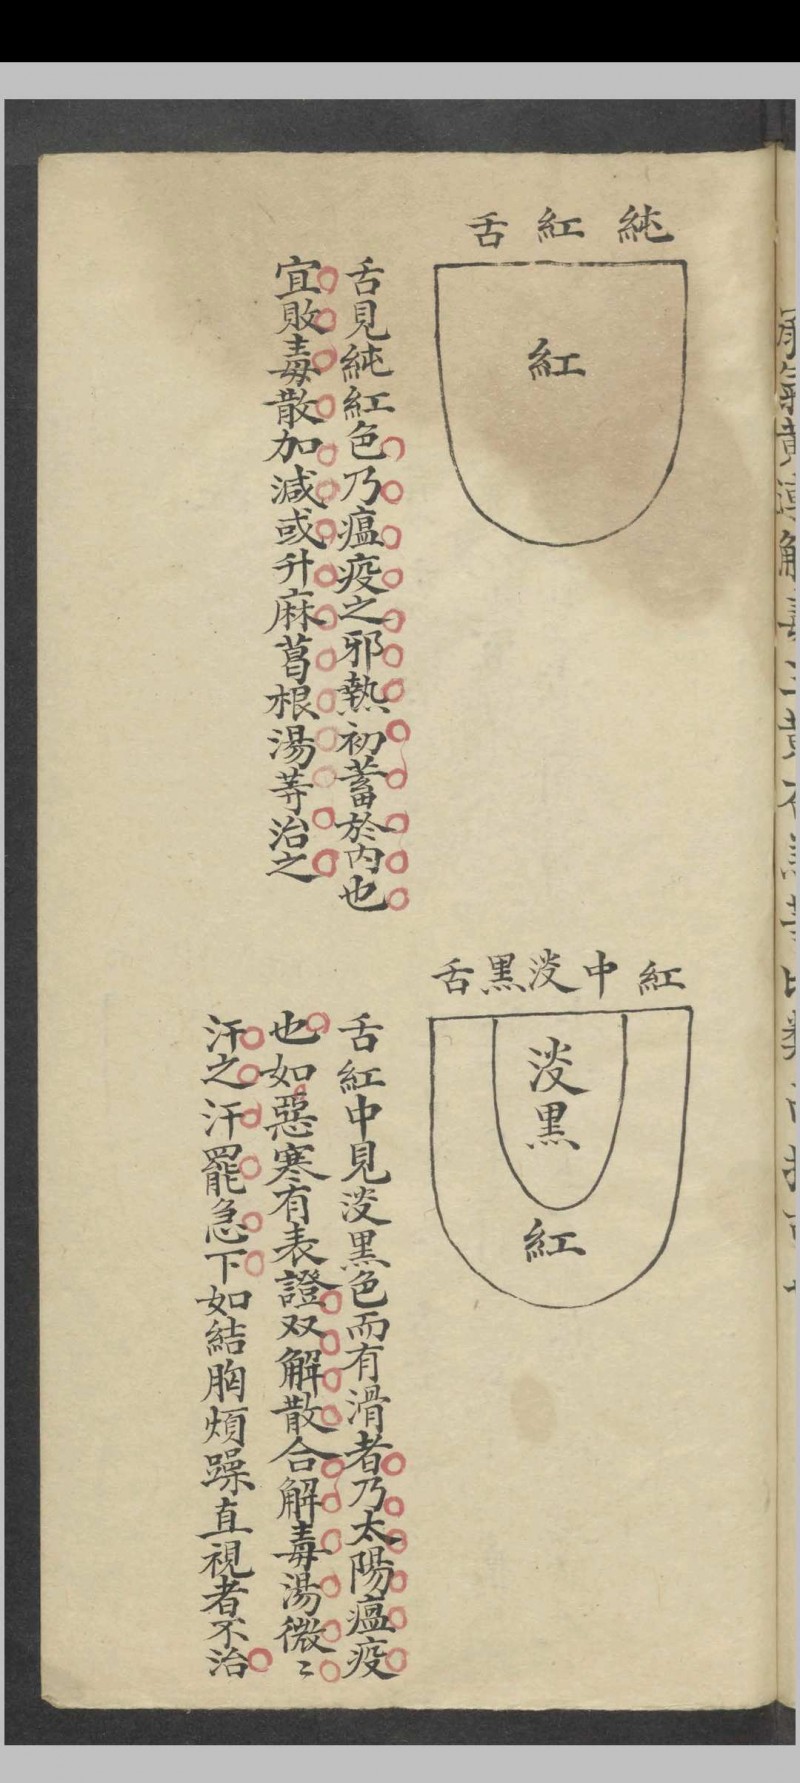 純紅舌
紅
舌見純紅色乃瘟疫之邪熱初蓄於内也
宜敗毒散加減或升麻葛根湯等治之
紅中淡黑舌
淡黑
紅
舌紅中見淡黑色而有滑者乃太陽瘟疫
也如惡寒有表證双解散合解毒湯微〻
汗之汗罷急下如結胸煩躁直視者不治